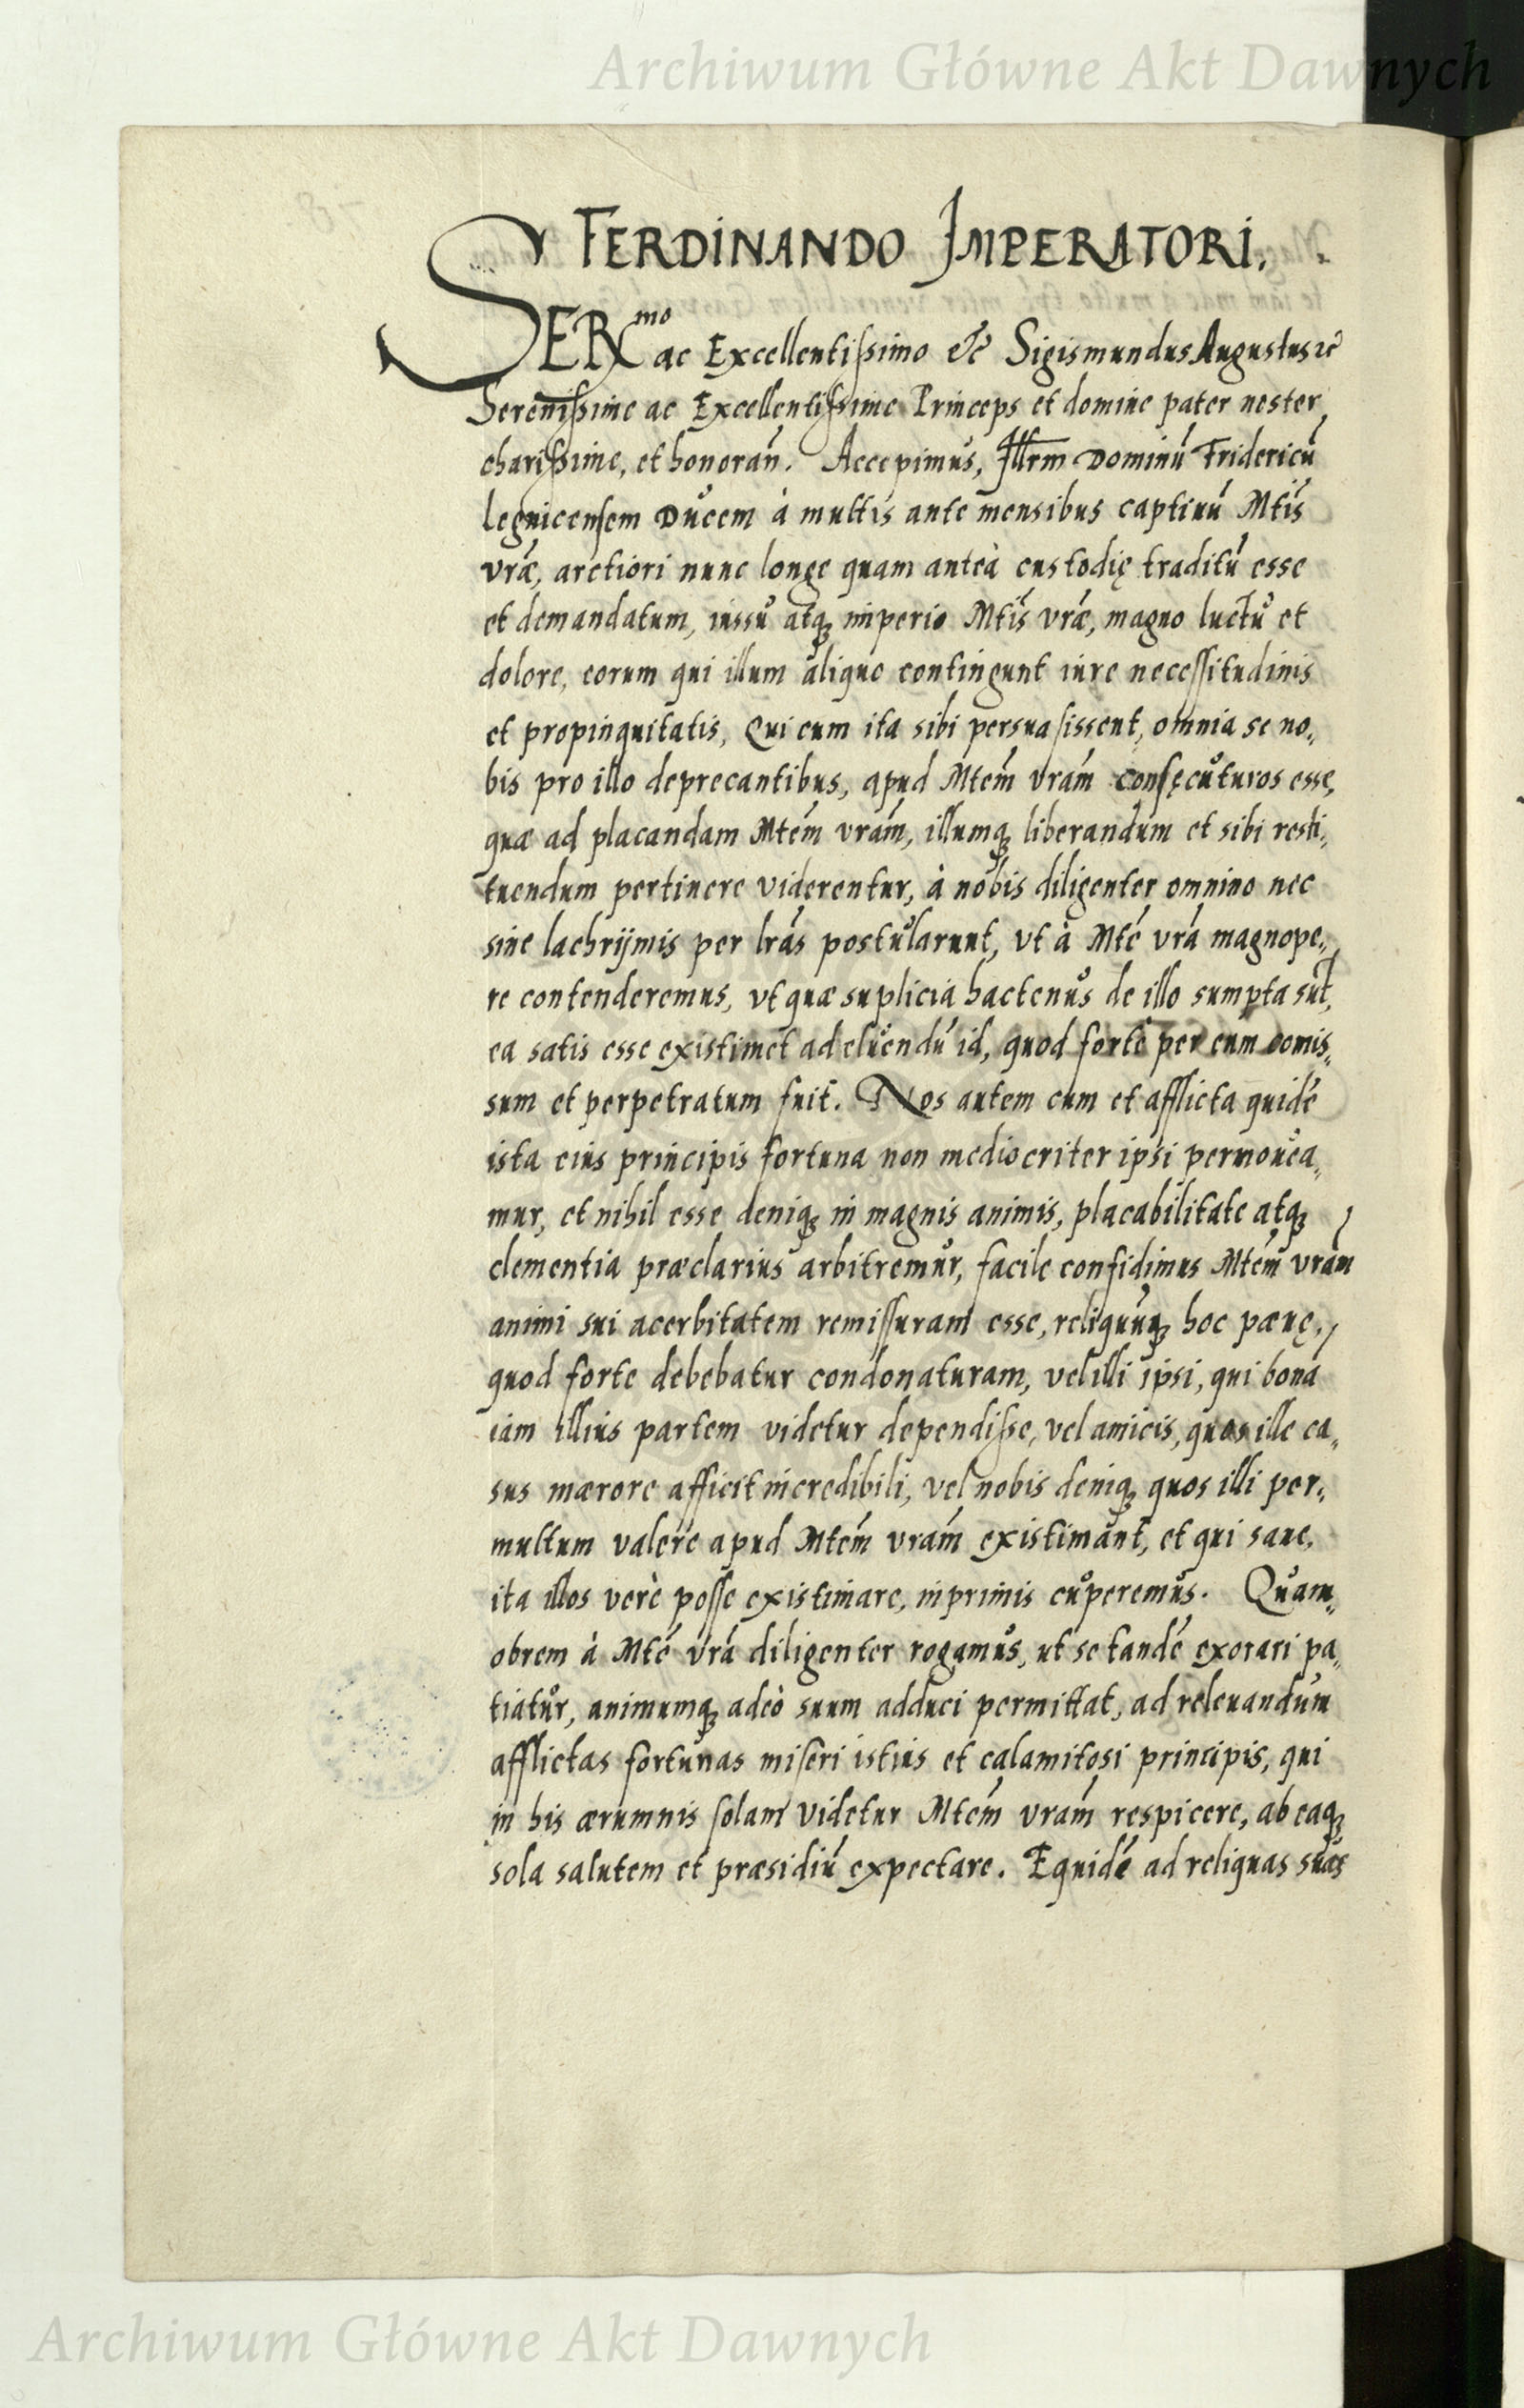 Archiwum Główne Akt Dawnych
FERDINANDO IMPERATORI.
SERmo ac Excellentissimo &c Sigismundus Augustus &c
Serenissime ac Excellentissime Princeps et domine pater noster
charissime, et honoran̄. Accepimus, Illrm̄ Dominū Fridericū
Legnicensem Ducem à multis ante mensibus captiuū Mtis
vrae, arctiori nunc longe quam anteà custodię traditū esse
et demandatum, iussu atq; imperio Mtis vrae, magno luctu et
dolore, eorum qui illum aliquo contingunt iure necessitudinis
et propinquitatis, Qui cum ita sibi persuasissent, omnia se no„
bis pro illo deprecantibus, apud Mtem vram consęcuturos esse,
quae ad placandam Mtem vram, illumq; liberandum et sibi resti„
tuendum pertinere viderentur, à nobis diligenter omnino nec
sine lachrijmis per lras postularunt, vt à Mte vra magnope„
re contenderemus, vt quae suplicia hactenus de illo sumpta sūt,
ea satis esse existimet ad eluendū id, quod forte per eum comis„
sum et perpetratum fuit. Nos autem cum et afflicta quidē
ista eius principis fortuna non mediocriter ipsi permouea„
mur, et nihil esse deniq; in magnis animis, placabilitate atq;
clementia praeclarius arbitremur, facile confidimus Mtem vram
animi sui acerbitatem remissuram esse, reliquūq; hoc paenę,
quod forte debebatur condonaturam, vel illi ipsi, qui bonā
iam illius partem videtur dependisse, vel amicis, quos ille ca„
sus maerore afficit incredibili, vel nobis deniq; quos illi per„
multum valere apud Mtem vram existimant, et qui sane,
ita illos verè posse existimare, inprimis cuperemus. Quam„
obrem à Mte vra diligenter rogamus, ut se tandē exorari pa„
tiatur, animumq; adeò suum adduci permittat, ad releuandum
afflictas fortunas miseri istius et calamitosi principis, qui
in his aerumnis solam videtur Mtem vram respicere, ab eaq;
sola salutem et praesidiū expectare. Equidē ad reliquas suas
Archiwum Główne Akt Dawnych